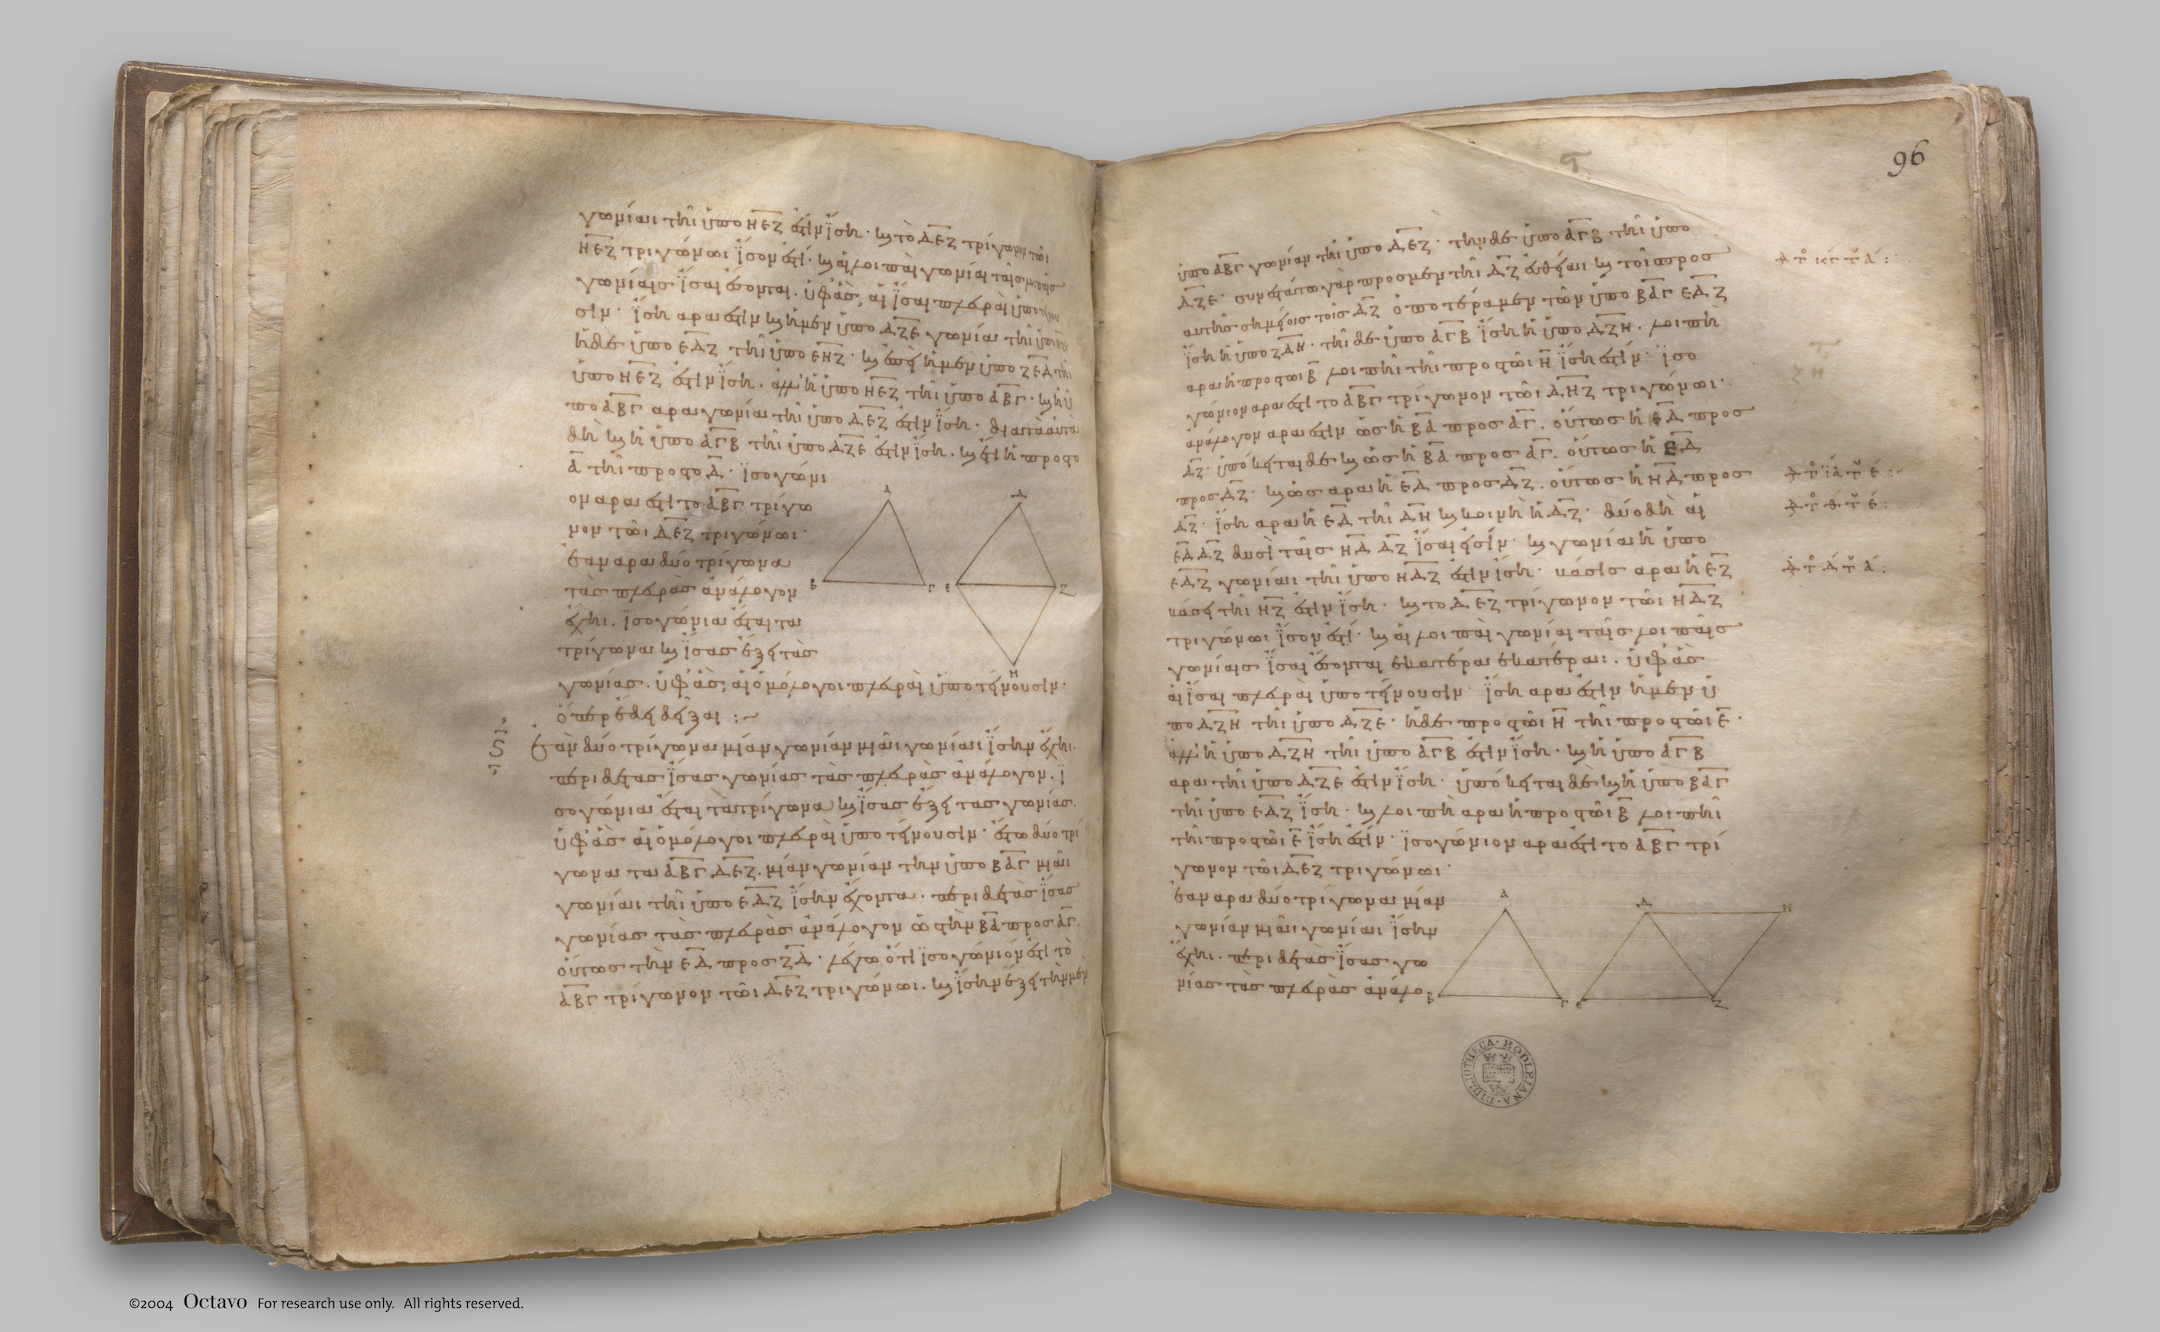 γωνίαι τῆι ὑπὸ ΗΕΖ ἐστὶν ἴση· καὶ τὸ ΔΕΖ τρίγωνον τῶι
ΗΕΖ τριγώνωι ἴσον ἐστί· καὶ αἱ λοιπαὶ γωνίαι ταῖς λοιπαῖς
γωνίαις ἴσαι ἔσονται. ὑφ' ἃς αἱ ἴσαι πλευραὶ ὑποτείνου
σιν· ἴση ἄρα ἐστὶν καὶ ἡ μὲν ὑπὸ ΔΖΕ γωνία τῆι ὑπὸ
ἡ δὲ ὑπὸ ΕΔΖ τῆι ὑπὸ ΕΗΖ· καὶ ἐπεὶ ἡ μὲν ὑπὸ ΖΕΔ τῆι
ὑπὸ ΗΕΖ ἐστὶν ἴση. ἀλλ' ἡ ὑπὸ ΗΕΖ τῆι ὑπὸ ΑΒΓ· καὶ ἡ ὑ
πὸ ΑΒΓ ἄρα γωνία τῆι ὑπὸ ΔΕΖ ἐστὶν ἴση· διὰ τὰ αὐτὰ
δὴ καὶ ἡ ὑπὸ ΑΓΒ τῆι ὑπὸ ΔΖΕ ἐστὶν ἴση. καὶ ἔτι ἡ πρὸς τῶ
Α τῆι πρὸς τῶ Δ· ἰσογώνι
ον ἄρα ἐστὶ τὸ ΑΒΓ τρίγω
νον τῶι ΔΕΖ τριγώνωι·
ἐὰν ἄρα δύο τρίγωνα
τὰς πλευρὰς ἀνάλογον
ἔχηι. ἰσογώνια ἔσται τὰ
τρίγωνα καὶ ἴσας ἕξει τὰς
γωνίας. ὑφ' ἃς αἱ ὁμόλογοι πλευραὶ ὑποτείνουσιν·
ὅπερ ἔδει δεῖξαι :~
Α
Β
Γ
Δ
Ε
Ζ
Η
ς
Ἐὰν δύο τρίγωνα μίαν γωνίαν μιᾶι γωνίαι ἴσην ἔχηι.
περὶ δὲ τὰς ἴσας γωνίας τὰς πλευρὰς ἀνάλογον. ἰ
σογώνια ἔσται τὰ τρίγωνα καὶ ἴσας ἕξει τὰς γωνίας.
ὑφ' ἃς αἱ ὁμόλογοι πλευραὶ ὑποτείνουσιν· ἔστω δύο τρί
γωνα τὰ ΑΒΓ ΔΕΖ. μίαν γωνίαν τὴν ὑπὸ ΒΑΓ μιᾶι
γωνίαι τῆι ὑπὸ ΕΔΖ ἴσην ἔχοντα. περὶ δὲ τὰς ἴσας
γωνίας τὰς πλευρὰς ἀνάλογον ὡς τὴν ΒΑ πρὸς ΑΓ.
οὕτως τὴν ΕΔ πρὸς ΖΔ· λέγω ὅτι ἰσογώνιόν ἐστι τὸ
ΑΒΓ τρίγωνον τῶι ΔΕΖ τριγώνωι. καὶ ἴσην ἕξει τὴν μὲν
96
ὑπὸ ΑΒΓ γωνίαν τῆι ὑπὸ ΔΕΖ· τὴν δὲ ὑπὸ ΑΓΒ τῆι ὑπὸ
ΔΖΕ· συνεστάτω γὰρ πρὸς μὲν τῆι ΔΖ εὐθείαι καὶ τοῖς πρὸς
αὐτῆς σημείοις τοῖς ΔΖ ὁποτέρα μὲν τῶν ὑπὸ ΒΑΓ ΕΔΖ
ἴση ἡ ὑπὸ ΖΔΗ· τῆι δὲ ὑπὸ ΑΓΒ ἴση ἡ ὑπὸ ΔΖΗ. λοιπὴ
ἄρα ἡ πρὸς τῶι Β λοιπῆι τῆι πρὸς τῶι Η ἴση ἐστίν· ἰσο
γώνιον ἄρα ἐστὶ τὸ ΑΒΓ τρίγωνον τῶι ΔΗΖ τριγώνωι·
ἀνάλογον ἄρα ἐστὶν ὡς ἡ ΒΑ πρὸς ΑΓ. οὕτως ἡ ΕΔ πρὸς
ΔΖ· ὑπόκειται δὲ καὶ ὡς ἡ ΒΑ πρὸς ΑΓ. οὕτως ἡ ΕΔ
πρὸς ΔΖ· καὶ ὡς ἄρα ἡ ΕΔ πρὸς ΔΖ. οὕτως ἡ ΗΔ πρὸς
ΔΖ· ἴση ἄρα ἡ ΕΔ τῆι ΔΗ καὶ κοινὴ ἡ ΔΖ· δύο δὴ αἱ
ΕΔ ΔΖ δυσὶ ταῖς ΗΔ ΔΖ ἴσαι εἰσίν· καὶ γωνία ἡ ὑπὸ
ΕΔΖ γωνίαι τῆι ὑπὸ ΗΔΖ ἐστὶν ἴση· βάσις ἄρα ἡ ΕΖ
βάσει τῆι ΗΖ ἐστὶν ἴση· καὶ τὸ ΔΕΖ τρίγωνον τῶι ΗΔΖ
τριγώνωι ἴσον ἐστί· καὶ αἱ λοιπαὶ γωνίαι ταῖς λοιπαῖς
γωνίαις ἴσαι ἔσονται ἑκατέρα ἑκατέραι. ὑφ' ἃς
αἱ ἴσαι πλευραὶ ὑποτείνουσιν· ἴση ἄρα ἐστὶν ἡ μὲν ὑ
πὸ ΔΖΗ τῆι ὑπὸ ΔΖΕ· ἡ δὲ πρὸς τῶι Η τῆι πρὸς τῶι Ε·
ἀλλ' ἡ ὑπὸ ΔΖΗ τῆι ὑπὸ ΑΓΒ ἐστὶν ἴση· καὶ ἡ ὑπὸ ΑΓΒ
ἄρα τῆι ὑπὸ ΔΖΕ ἐστὶν ἴση· ὑπόκειται δὲ καὶ ἡ ὑπὸ ΒΑΓ
τῆι ὑπὸ ΕΔΖ ἴση· καὶ λοιπὴ ἄρα ἡ πρὸς τῶι Β λοιπῆι
τῆι πρὸς τῶι Ε ἴση ἐστίν· ἰσογώνιον ἄρα ἐστὶ τὸ ΑΒΓ τρί
γωνον τῶι ΔΕΖ τριγώνωι·
ἐὰν ἄρα δύο τρίγωνα μίαν
γωνίαν μιᾶι γωνίαι ἴσην
ἔχηι. περὶ δὲ τὰς ἴσας γω
νίας τὰς πλευρὰς ἀνάλο
Α
Β
Γ
Δ
Ε
Ζ
Η
BIBLIOTHECA·BODLEIANA
©2004 Octavo For research use only. All rights reserved.